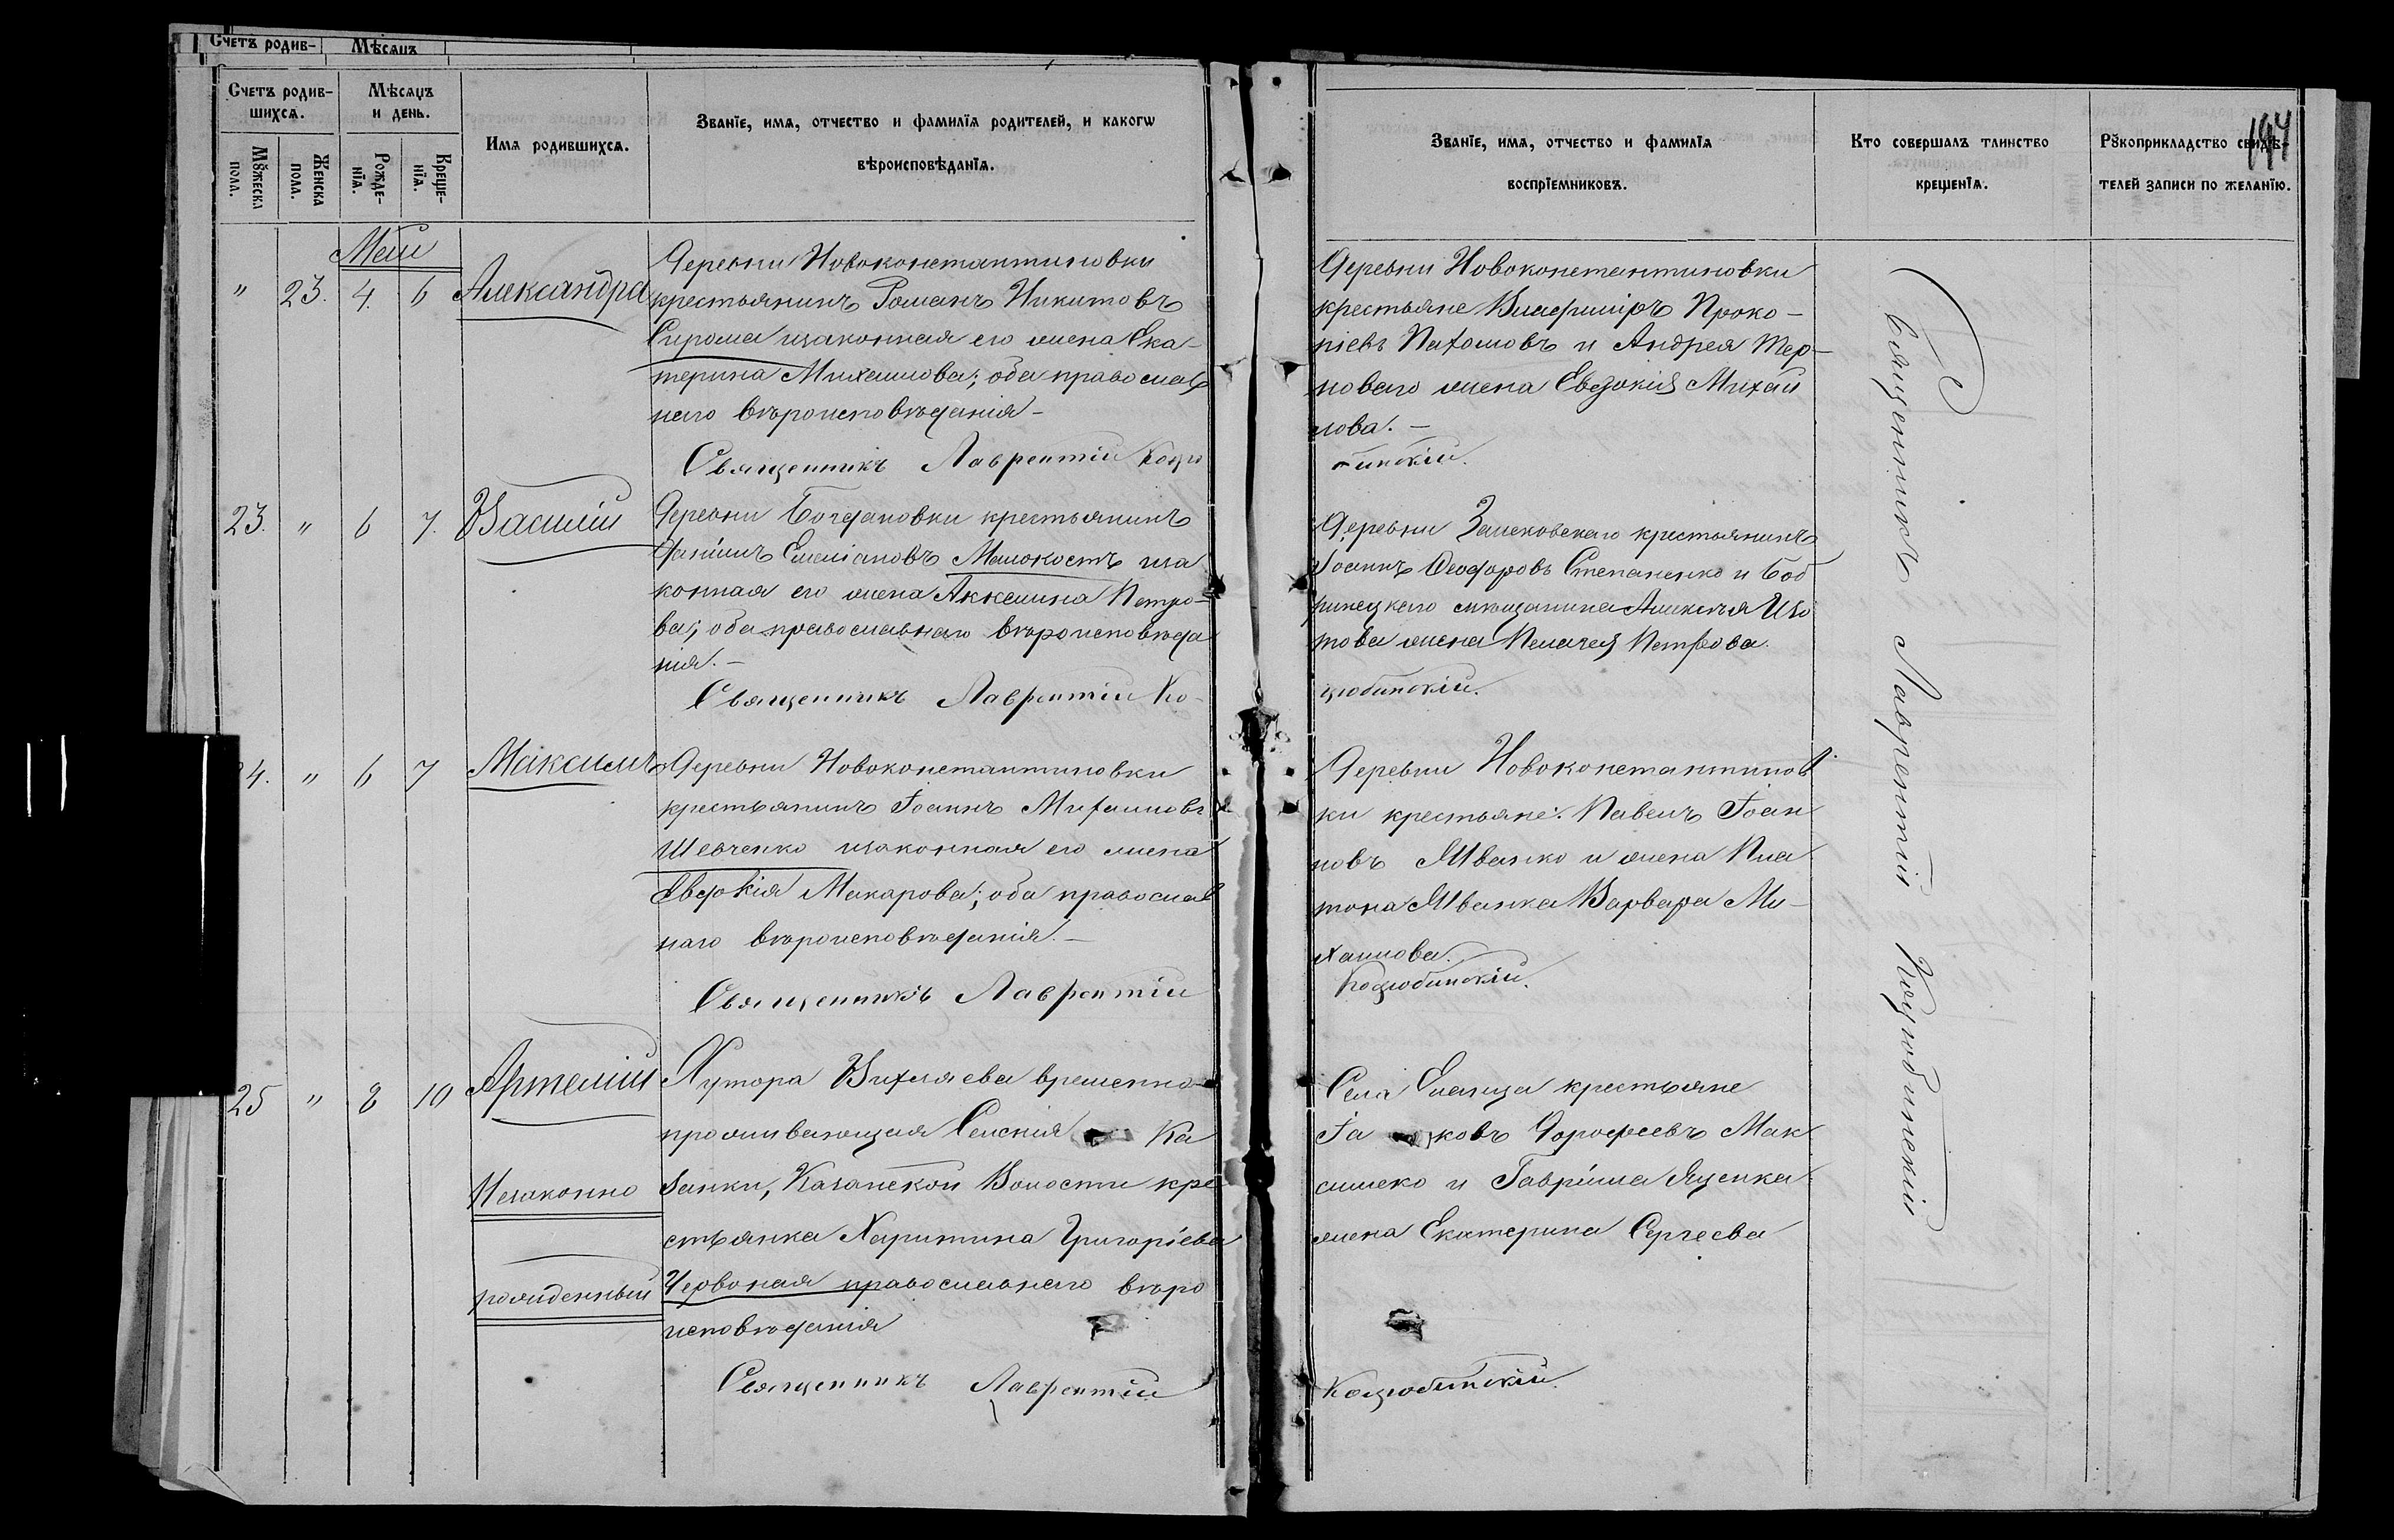 Счетъ родив- Мѣсяцъ
Счетъ родив-
шихся.
Мѣсяцъ
и день.
Мужеска
пола.
Женска
пола.
Рожде-
нїя.
Креще-
нїя.
Имя родившихся.
Званїе, имя, отчество и фамилїя родителей, и какогѡ
вѣроисповѣданїя.
Званїе, имя, отчество и фамилїя
воспрїемниковъ.
Кто совершалъ таинство
крещенїя.
Рꙋкоприкладство свидѣ-
телей записи по желанїю.
194
Май
" 23. 4. 6 Александра
Деревни Новоконстантиновки
крестьянинъ Романъ Никитовъ
Сирома изаконная его жена Ека-
терина Михаилова; оба православ
наго вѣроисповѣданія-
Священникъ Лаврентій Коцю
Деревни Новоконстантиновки
крестьяне Владиміръ Проко-
піевъ Пахомовъ и Андрея Тер-
новаго жена Евдокія Михаи
лова. -
бинскій.
23. " 6 7. Василій
Деревни Богдановки крестьянинъ
Даніилъ Емеліановъ Малокостъ иза
конная его жена Аккелина Петро-
ва; оба православнаго вѣроисповѣда
нія. -
Священникъ Лаврентій Ко-
Деревни крестьянинъ
Іоаннъ Феодоровъ Степаненко и Боб
ринецкаго мѣщанина Алексѣя Изо
това жена Пелагея Петрова.
цюбинскій.
24. " 6 7 Максимъ
Деревни Новоконстантиновки
крестьянинъ Іоаннъ Михаиловъ
Шевченко изаконная его жена
Евдокія Макарова; оба православ
наго вѣроисповѣданія. -
Священникъ Лаврентій
Деревни Новоконстантинов
ки крестьяне: Павелъ Іоан
новъ Иванко и жена Пла
тона Иванка Варвара Ми-
хаилова.
Коцюбинскій.
25 " 8 10 Артемій
Незаконно
рожденный
Хутора Вихляева временно-
проживающая Селенія Ка
занки, Казанской Волости кре
стьянка Харитина Григоріева
Червоная православнаго вѣро
исповѣданія
Священникъ Лаврентій
Села Еланца крестьяне
Іа ковъ Дорофеевъ Мак
сименко и Гавріила Яценка
жена Екатерина Сергеева
Коцюбинскій.
Священникъ Лаврентій Коцюбинскій